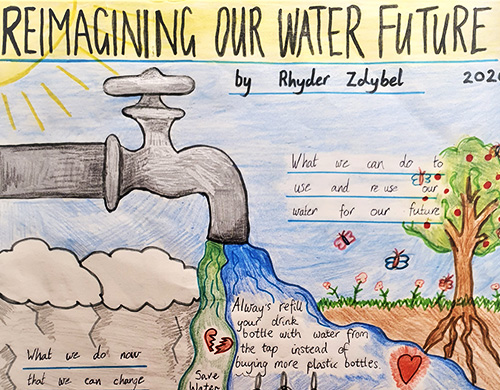 REIMAGINING OUR WATER FUTURE
by Rhyder Zdybel 2020
What we can do to
use and re use our
water for our future
Always refill
your drink
bottle with water from
the tap instead of
buying more plastic bottles.
What we do now
that we can change
Save
Water